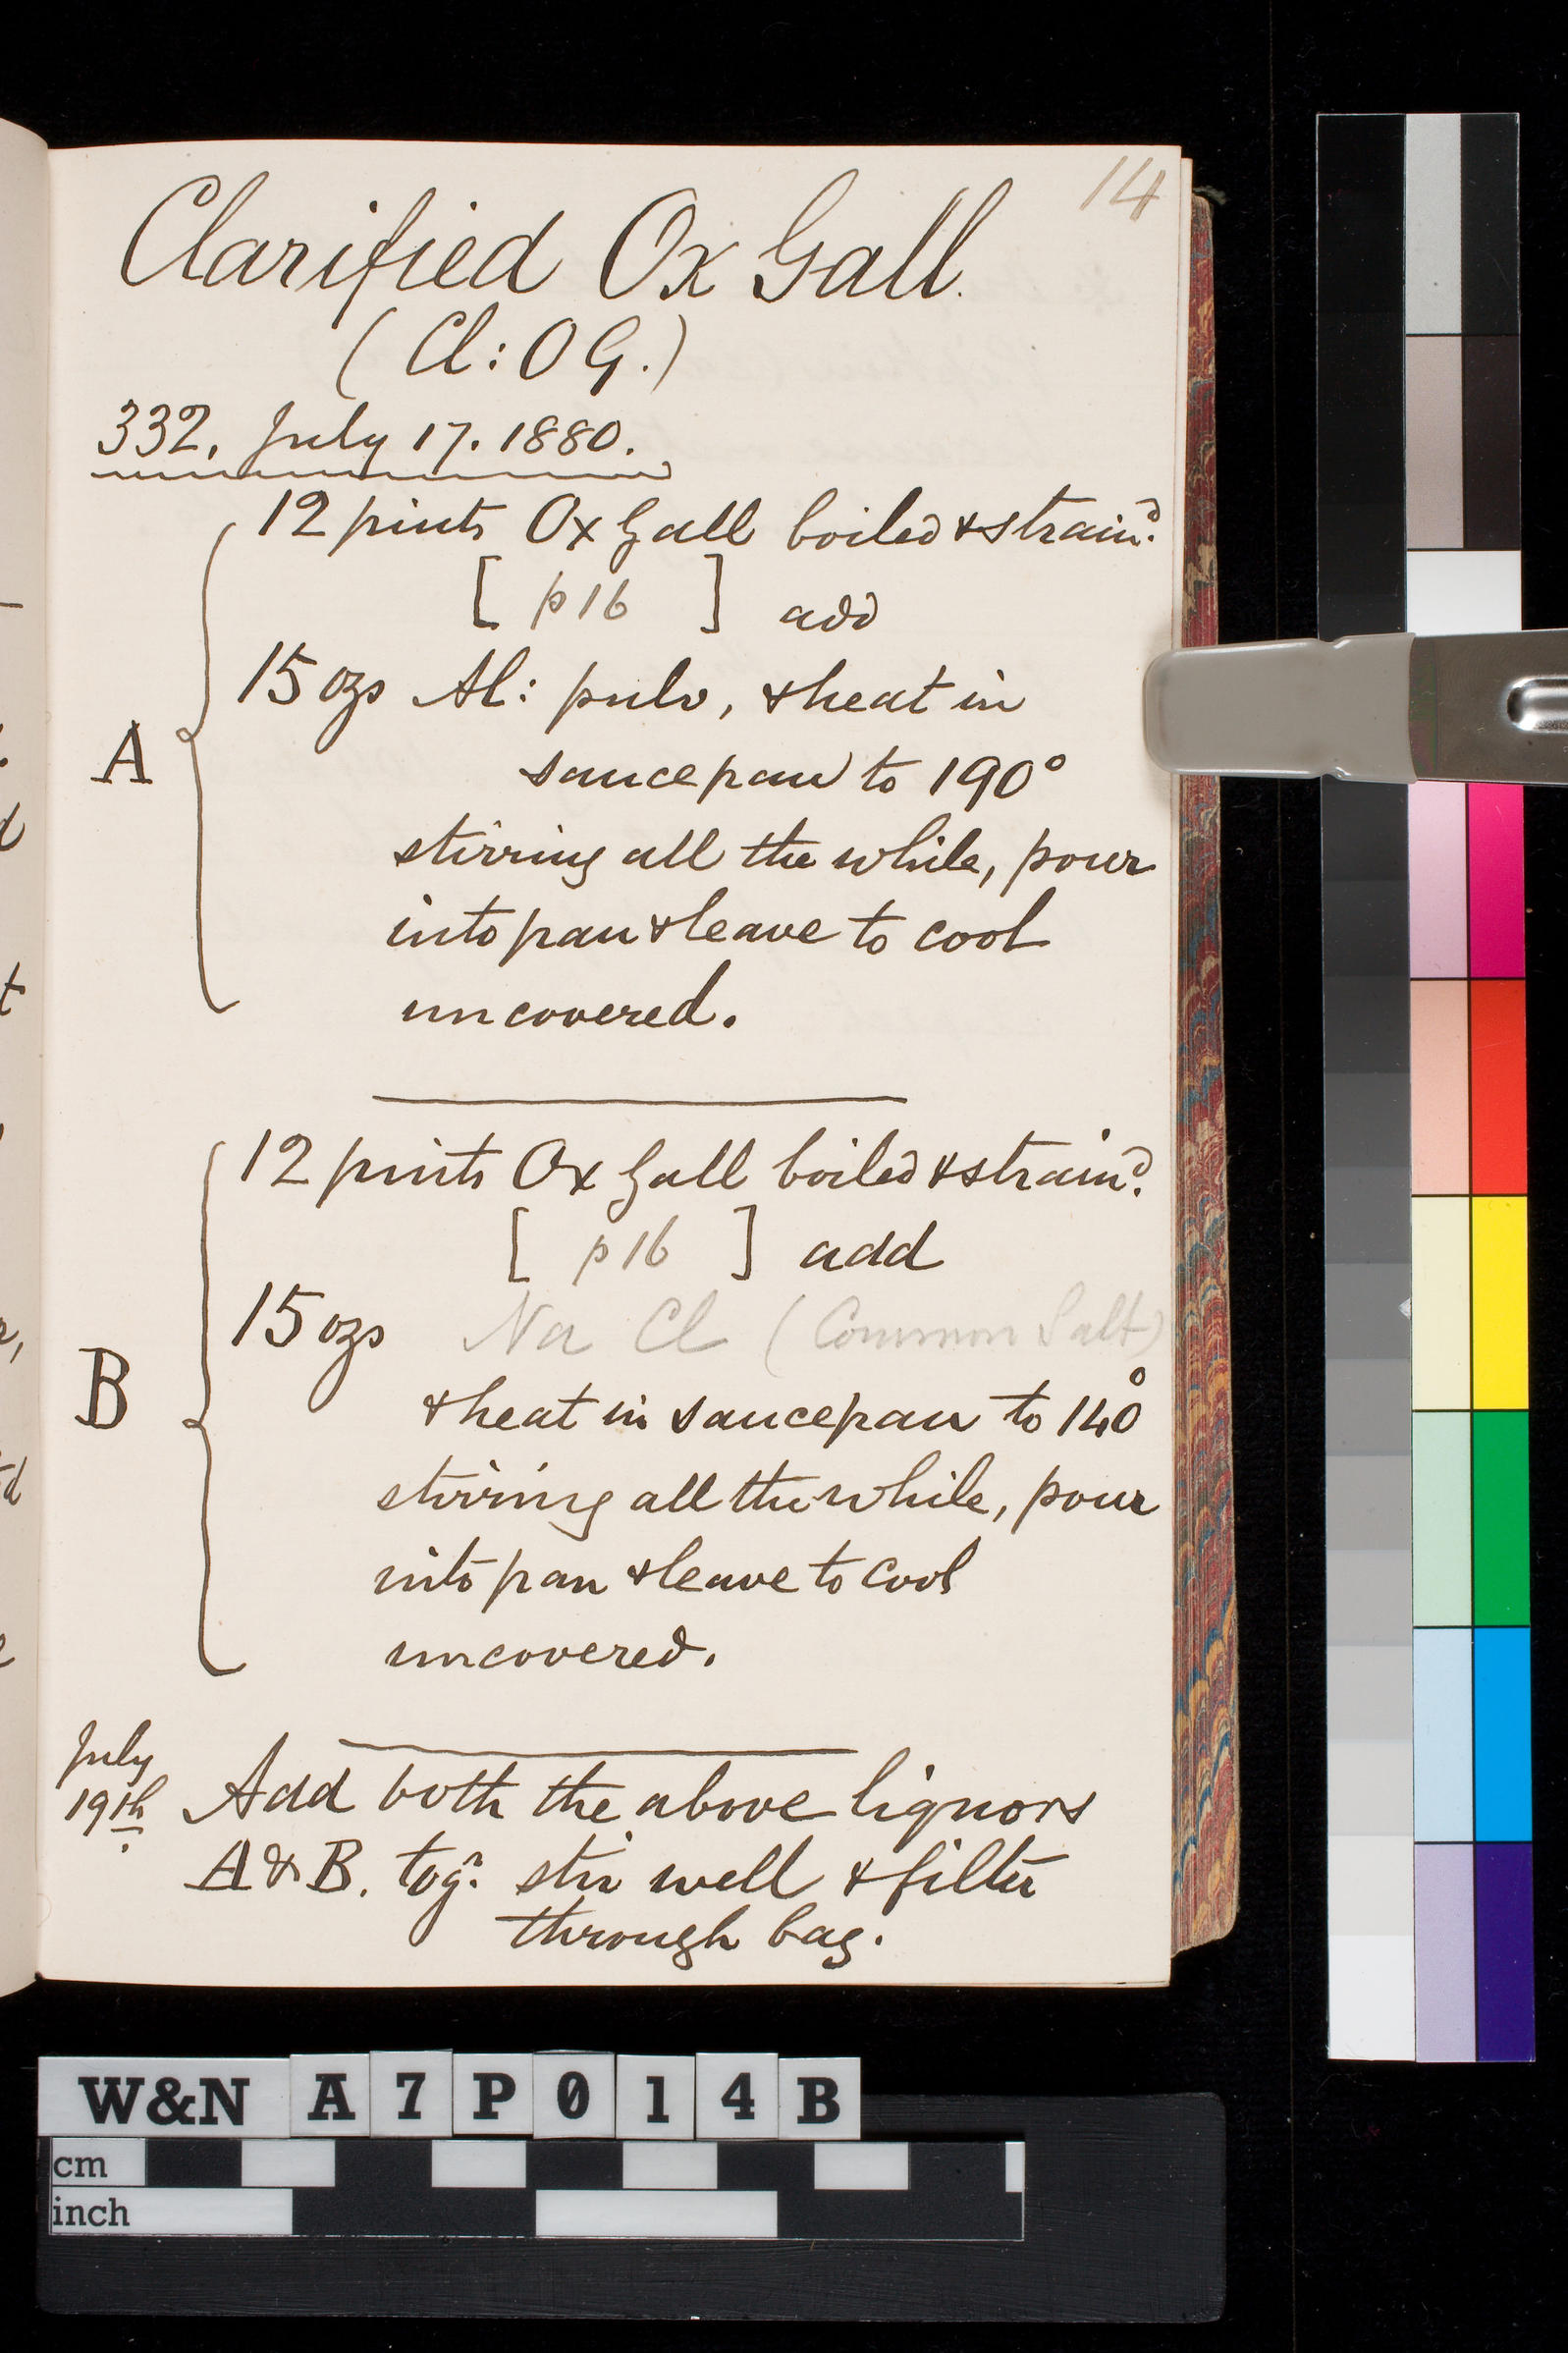 14
Clarified Ox Gall.
(Cl: O G.)
332, July 17. 1880.
12 pints Ox Gall boiled & strain.d
[ p 16 ] add
15 ozs Al: pulv, & heat in
A
saucepan to 190°
stirring all the while, pour
into pan & leave to cool
uncovered.
12 pints Ox Gall boiled & strain.d
[ p 16 ] add
15 ozs Na Cl (Common Salt)
B
& heat in saucepan to 140°
stirring all the while, pour
into pan & leave to cool
uncovered.
July
19th Add both the above liquors
A & B. tog.r stir well & filter
through bag.
W&N A7P014B
cm
inch